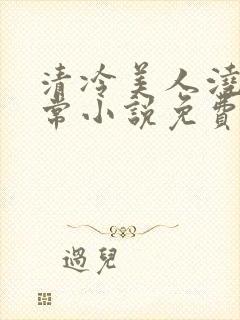 清冷美人澆
常小說免費
過兒